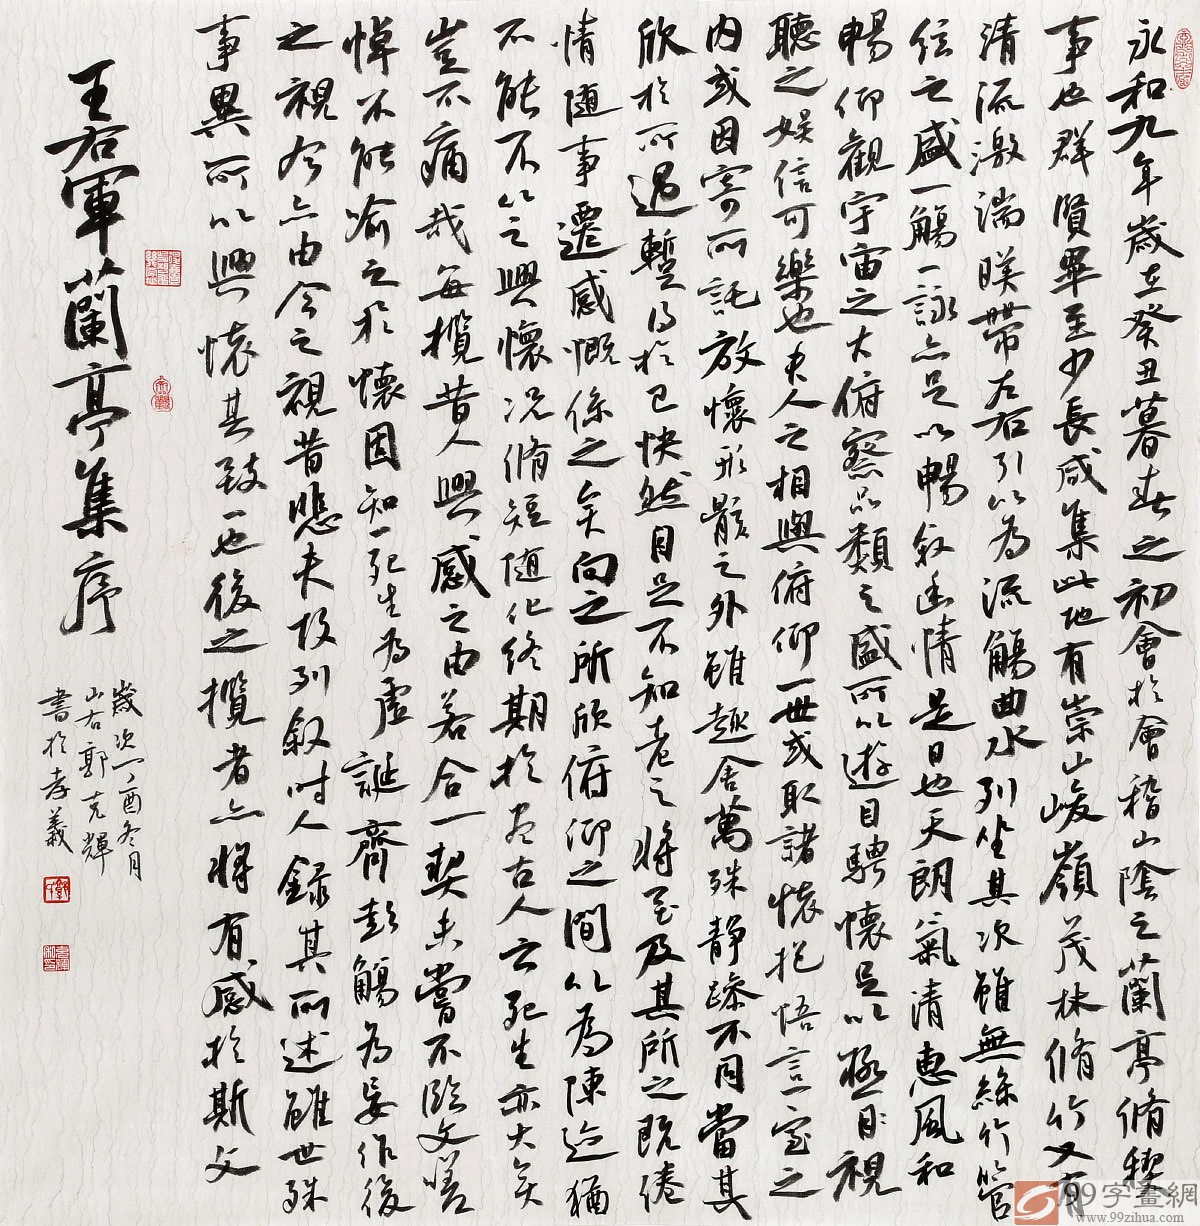 永和九年歲在癸丑暮春之初會於會稽山陰之蘭亭脩稧
事也群賢畢至少長咸集此地有崇山峻嶺茂林脩竹又有
清流激湍暎帶左右引以為流觴曲水列坐其次雖無絲竹管
弦之盛一觴一詠亦足以暢叙幽情是日也天朗氣清惠風和
暢仰觀宇宙之大俯察品類之盛所以遊目騁懷足以極視
聽之娛信可樂也夫人之相與俯仰一世或取諸懷抱悟言一室之
内或因寄所託放懷形骸之外雖趣舍萬殊靜躁不同當其
欣於所遇暫得於己快然自足不知老之將至及其所之既倦
情隨事遷感慨係之矣向之所欣俯仰之間以為陳迹猶
不能不以之興懷況脩短隨化終期於盡古人云死生亦大矣
豈不痛哉每攬昔人興感之由若合一契未嘗不臨文嗟
悼不能喻之於懷因知一死生為虛誕齊彭觴為妄作後
之視今亦由今之視昔悲夫故列叙時人録其所述雖世殊
事異所以興懷其致一也後之攬者亦將有感於斯文
王右軍蘭亭集序
歲次丁酉冬月
山右郭克輝
書於孝義
99字畫網
www.99zihua.com